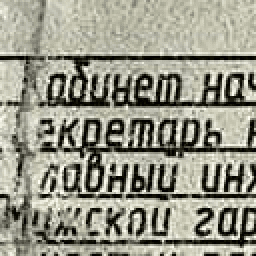 абинет нач
екретарь н
лавный инж
Мужской гар